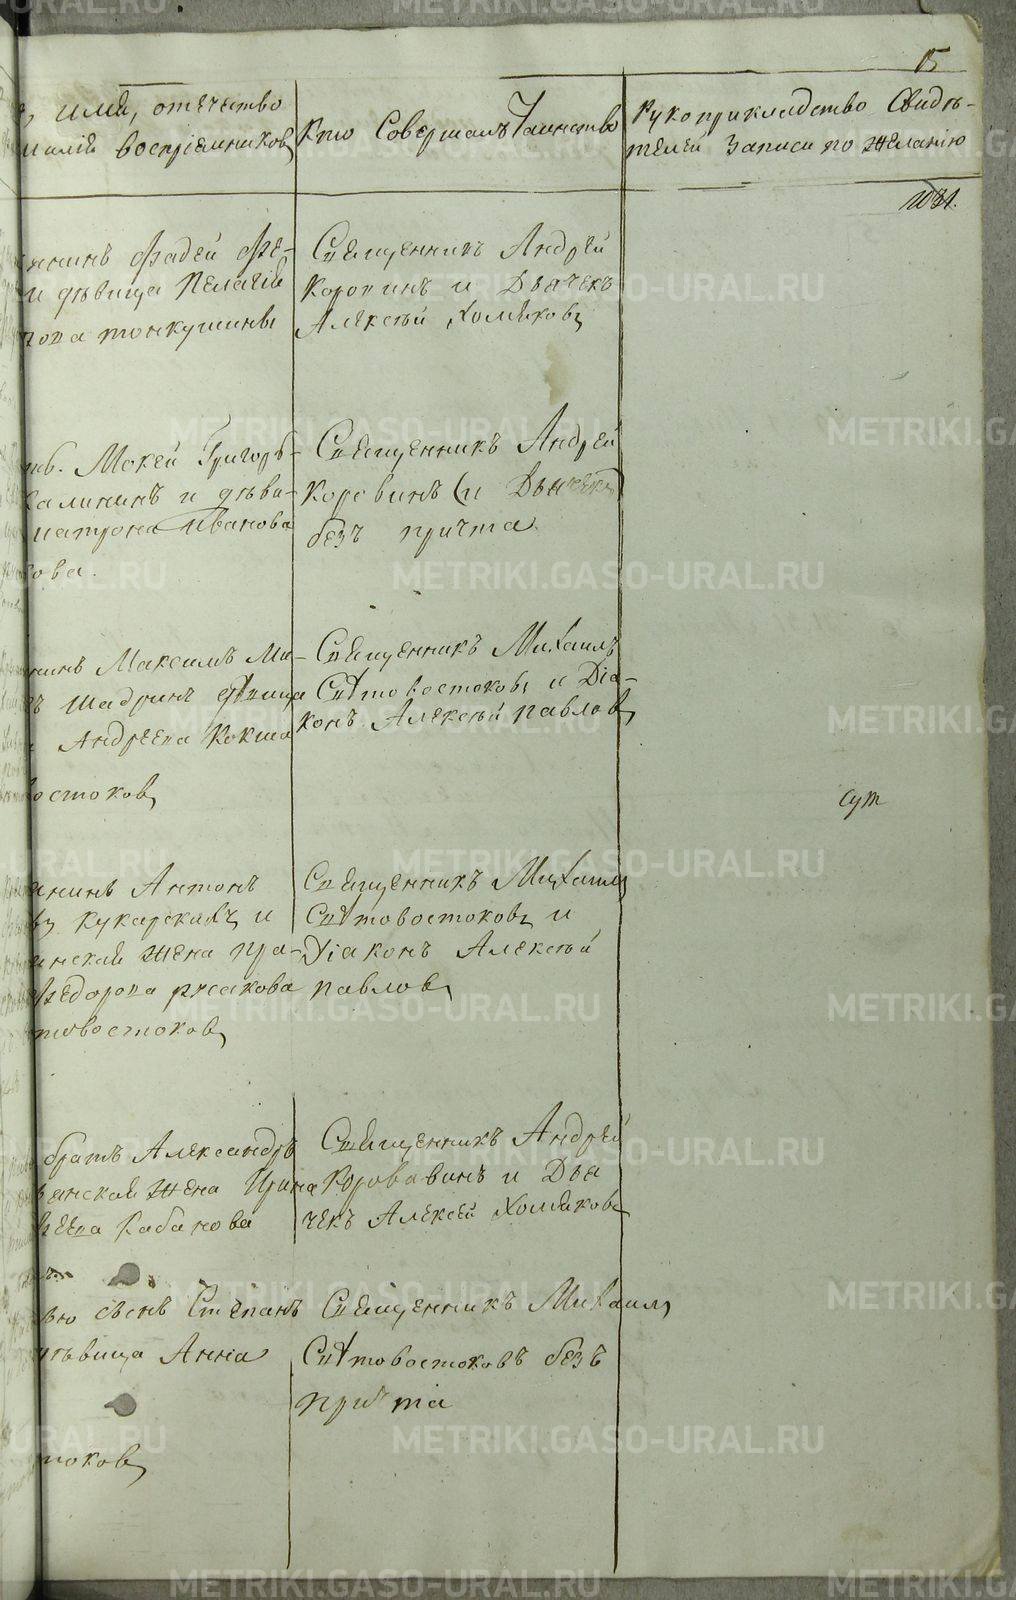 15
имя, отечество
восприемниковъ
Кто Совершалъ Таинство
Рукоприкладство Свидѣ-
телей Записи по Желанію
Фадей Фе-
и дѣвица Пелагия
тонкушины
Священникъ Андрей
Коровинъ и Дьячекъ
Алексѣй Хомяковъ
Мокей Григорь-
Калининъ и дѣви-
матрона Иванова
Священникъ Андрей
Коровинъ (и Дьячекъ)
безъ причта
Максимъ Ми-
шадринъ дѣвица
Андреева Кокша
востоковъ
Священникъ Михаилъ
Свѣтовостоковъ и Діа-
конъ Алексѣй павловъ
сут
Антонъ
кукарскихъ и
жена Пра-
Федорова русакова
товостоковъ
Священникъ Михаилъ
Свѣтовостоковъ и
Діаконъ Алексѣй
павловъ
братъ Александръ
жена Ирина
Кабанова
Священникъ Андрей
Коровавинъ и Дья
чекъ Алексѣй Хомяковъ
сынъ Степанъ
дѣвица Анна
токовъ
Священникъ Михаилъ
Свѣтовостоковъ безъ
причта
METRIKI.GASO-URAL.RU